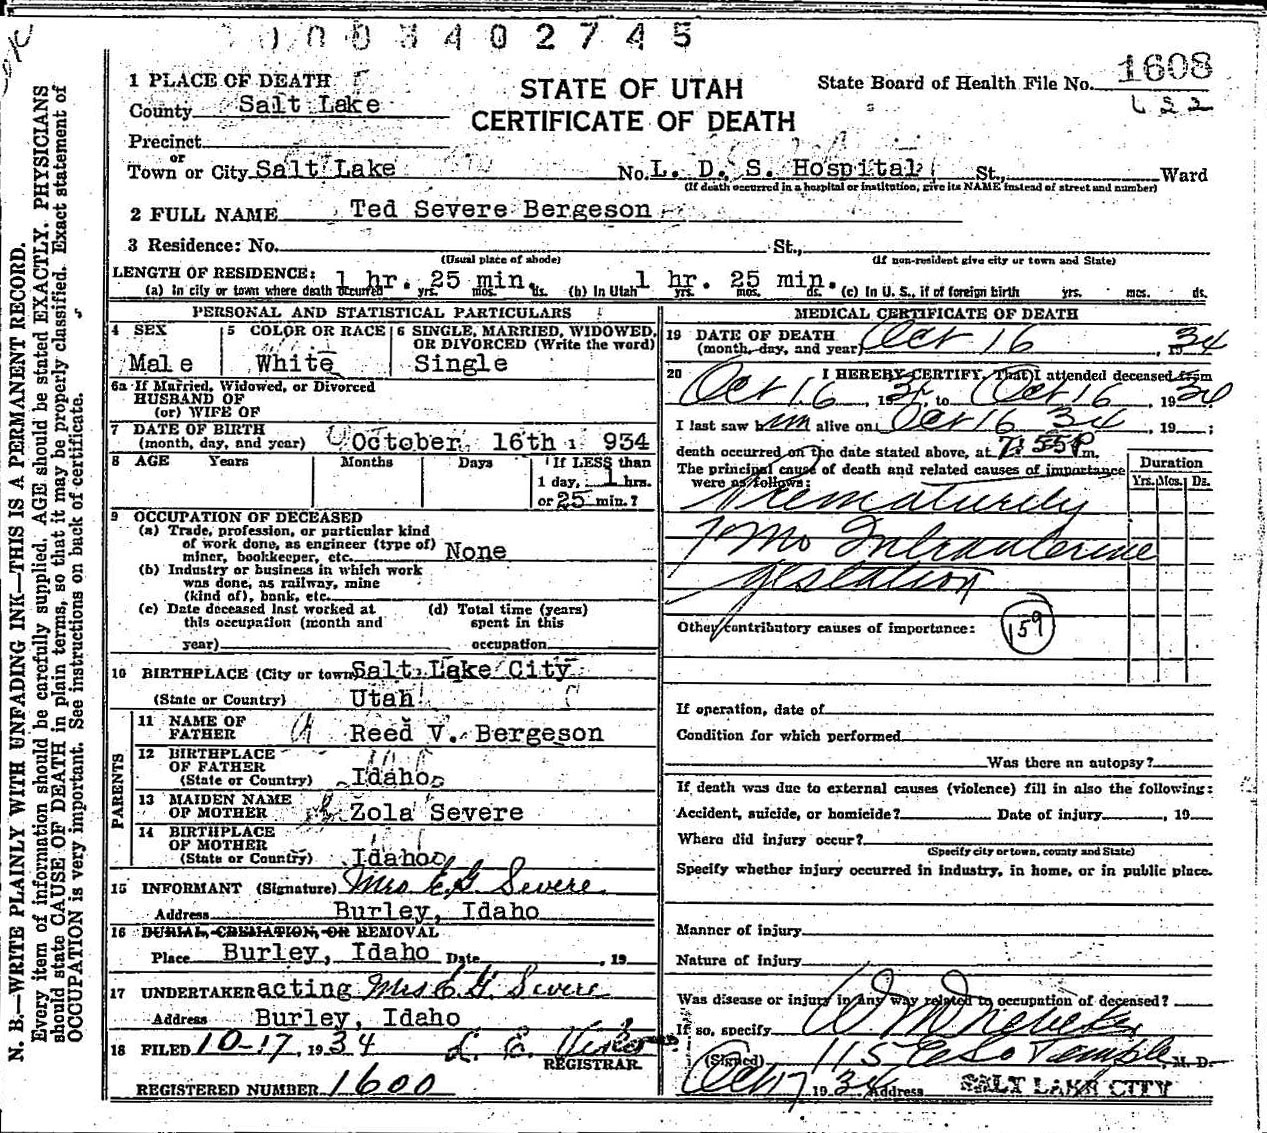 0003402745
N. B.—WRITE PLAINLY WITH UNFADING INK—THIS IS A PERMANENT RECORD.
Every item of information should be carefully supplied. AGE should be stated EXACTLY. PHYSICIANS
should state CAUSE OF DEATH in plain terms, so that it may be properly classified. Exact statement of
OCCUPATION is very important. See instructions on back of certificate.
STATE OF UTAH
CERTIFICATE OF DEATH
State Board of Health File No. 1608
1 PLACE OF DEATH
County Salt Lake
Precinct
or
Town or City Salt Lake No. L. D. S. Hospital St., Ward
(If death occurred in a hospital or institution, give its NAME instead of street and number)
2 FULL NAME Ted Severe Bergeson
3 Residence: No. St.,
(Usual place of abode) (If non-resident give city or town and State)
LENGTH OF RESIDENCE: 1 hr. 25 min. 1 hr. 25 min.
(a) In city or town where death occurred yrs. mos. ds. (b) In Utah yrs. mos. ds. (c) In U. S., if of foreign birth yrs. mos. ds.
PERSONAL AND STATISTICAL PARTICULARS
4 SEX 5 COLOR OR RACE 6 SINGLE, MARRIED, WIDOWED,
OR DIVORCED (Write the word)
Male White Single
6a If Married, Widowed, or Divorced
HUSBAND OF
(or) WIFE OF
7 DATE OF BIRTH
(month, day, and year) October 16th 1934
8 AGE Years Months Days If LESS than
1 day, 1 hrs.
or 25 min.?
9 OCCUPATION OF DECEASED
(a) Trade, profession, or particular kind
of work done, as engineer (type of)
miner, bookkeeper, etc. None
(b) Industry or business in which work
was done, as railway, mine
(kind of), bank, etc.
(c) Date deceased last worked at (d) Total time (years)
this occupation (month and spent in this
year) occupation
10 BIRTHPLACE (City or town) Salt Lake City
(State or Country) Utah
PARENTS
11 NAME OF
FATHER Reed V. Bergeson
12 BIRTHPLACE
OF FATHER
(State or Country) Idaho
13 MAIDEN NAME
OF MOTHER Zola Severe
14 BIRTHPLACE
OF MOTHER
(State or Country) Idaho
15 INFORMANT (Signature) Mrs E. G. Severe
Address Burley, Idaho
16 BURIAL, CREMATION, OR REMOVAL
Place Burley, Idaho Date , 19
17 UNDERTAKER acting Mrs E. G. Severe
Address Burley, Idaho
18 FILED 10-17, 1934 L. E.
REGISTRAR
REGISTERED NUMBER 1600
MEDICAL CERTIFICATE OF DEATH
19 DATE OF DEATH
(month, day, and year) Oct 16, 1934
20 I HEREBY CERTIFY, That I attended deceased from
Oct 16, 1934, to Oct 16, 1934
I last saw him alive on Oct 16 34, 19 ;
death occurred on the date stated above, at 7:55 P m.
The principal cause of death and related causes of importance
were as follows:
Duration
Yrs. Mos. Ds.
Prematurity
7 mo Intrauterine
gestation
Other contributory causes of importance:
159
If operation, date of
Condition for which performed
Was there an autopsy?
If death was due to external causes (violence) fill in also the following:
Accident, suicide, or homicide? Date of injury , 19
Where did injury occur?
(Specify city or town, county and State)
Specify whether injury occurred in industry, in home, or in public place.
Manner of injury
Nature of injury
Was disease or injury in any way related to occupation of deceased?
If so, specify
(Signed) 115 E So Temple, M. D.
Oct 17 1934 Address SALT LAKE CITY